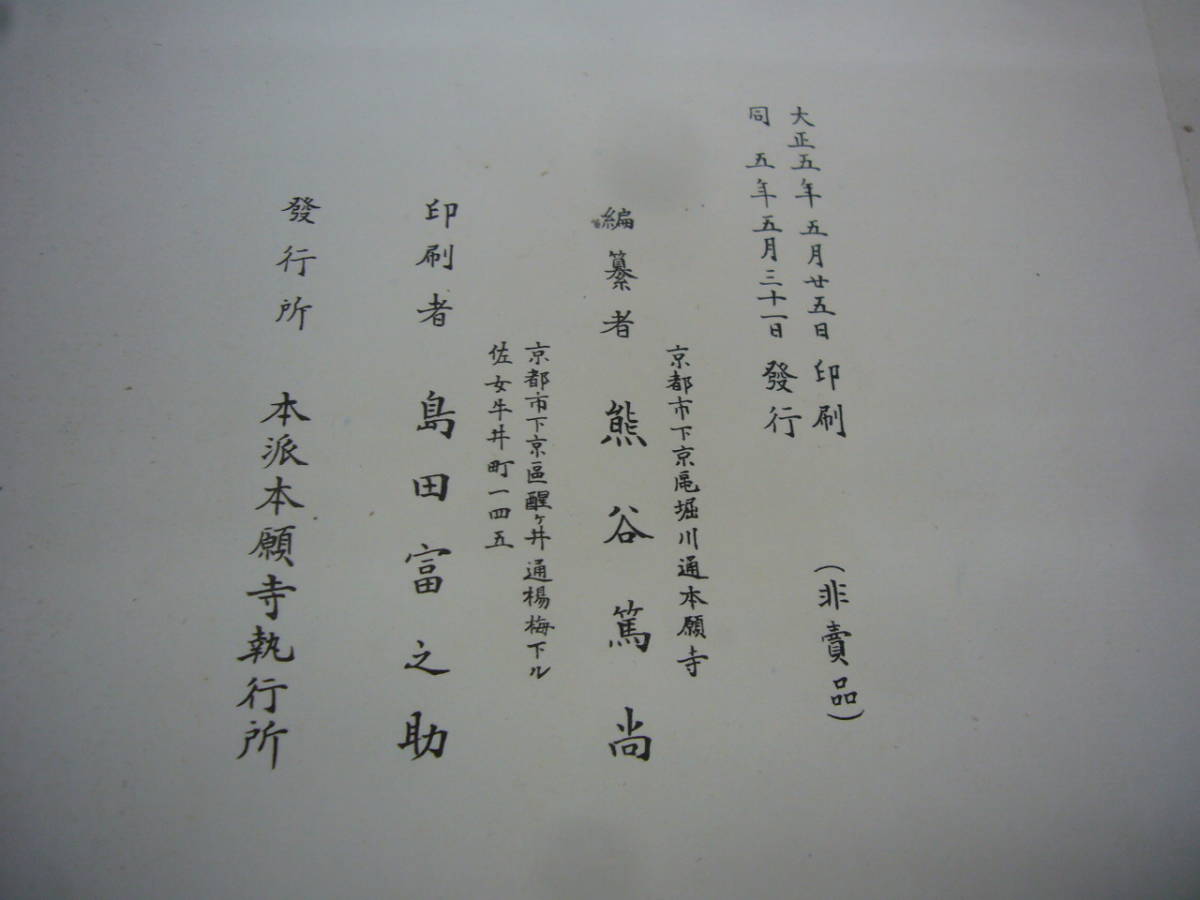 大正五年五月廿五日印刷
(非賣品)
同五年五月三十一日發行
京都市下京區堀川通本願寺
編纂者 熊谷篤尚
京都市下京區醒ヶ井通楊梅下ル
佐女牛井町一四五
印刷者 島田富之助
發行所 本派本願寺執行所